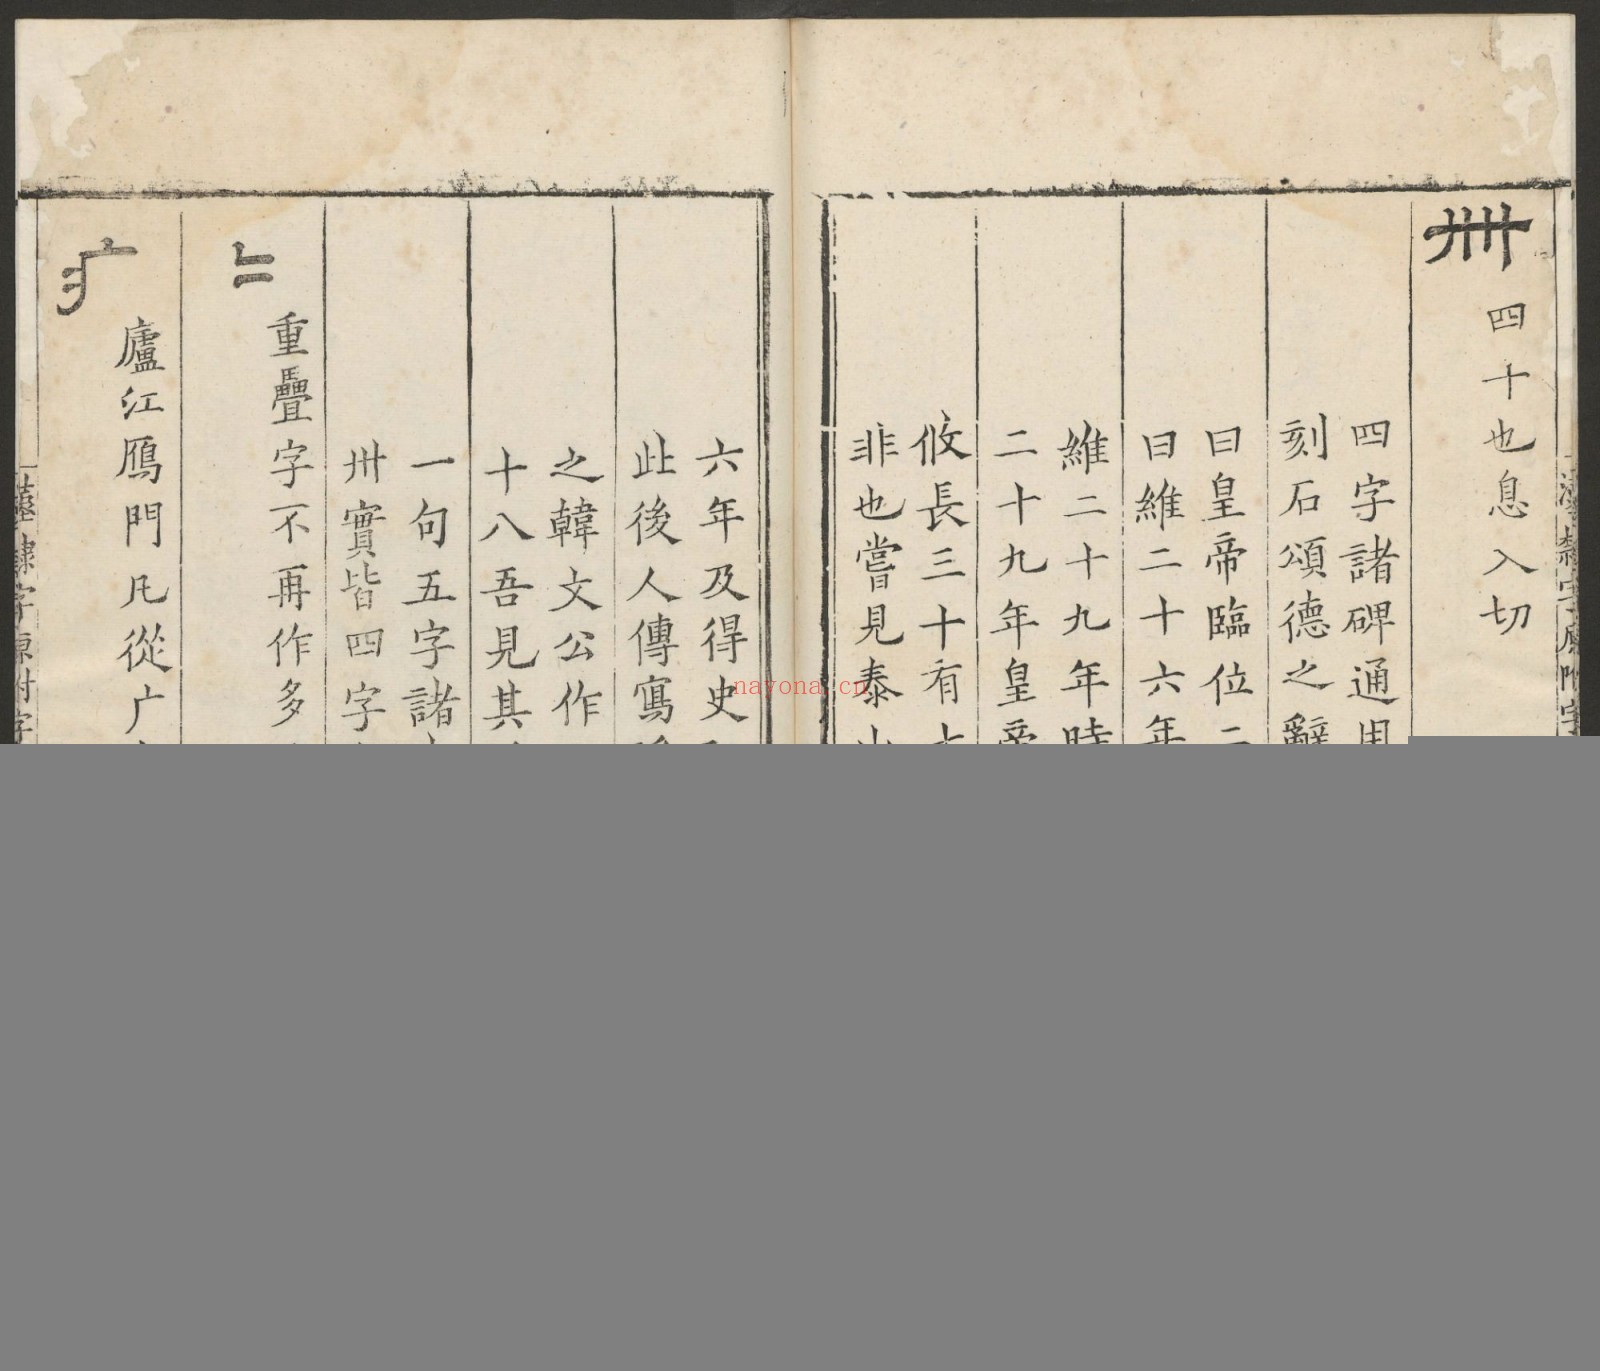 卌
四十也息入切
四字諸碑通用
刻石頌德之辭
曰皇帝臨位二
曰維二十六年
維二十九年時
二十九年皇帝
攸長三十有
非也嘗見泰山
六年及得史
此後人傳寫
之韓文公作
十八吾見其
一句五字諸
卅實皆四字
重疊字不再作多
廬江鴈門凡從广
漢隸字原附字
nayona.cn